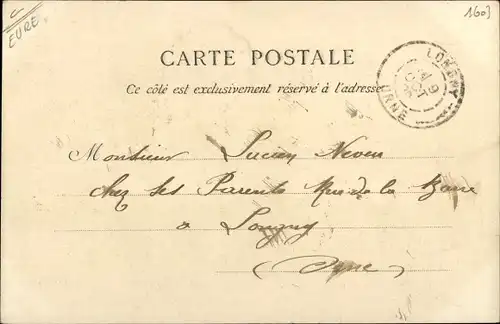 EURE
1603
CARTE POSTALE
Ce côté est exclusivement réservé à l'adresse
LONGNY
ORNE
Monsieur Lucien Neveu
chez ses Parents Rue de la Gare
à Longny
(Orne)